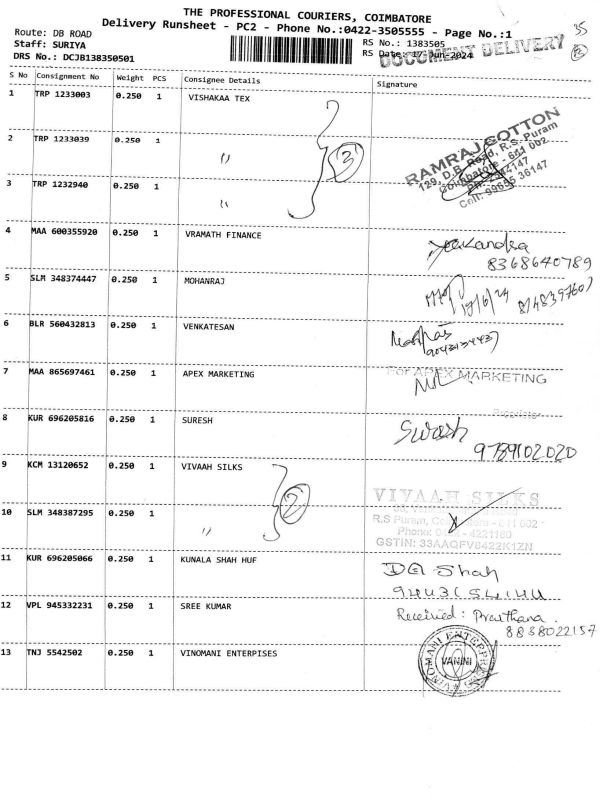 THE PROFESSIONAL COURIERS, COIMBATORE
Delivery Runsheet - PC2 - Phone No.:0422-3505555 - Page No.:1
35
Route: DB ROAD
Staff: SURIYA
RS No.: 1383505
DRS No.: DCJB138350501
RS Date: 17-Jun-2024
DOCUMENT DELIVERY
S No Consignment No Weight PCS Consignee Details Signature
1 TRP 1233003 0.250 1 VISHAKAA TEX
2 TRP 1233039 0.250 1 〃
3
RAMRAJ COTTON
129, D.B. Road, R.S. Puram
Coimbatore - 641 002
Cell: 99655 36147
3 TRP 1232940 0.250 1 〃
4 MAA 600355920 0.250 1 VRAMATH FINANCE
8368640789
5 SLM 348374447 0.250 1 MOHANRAJ
17/6/24
6 BLR 560432813 0.250 1 VENKATESAN
7 MAA 865697461 0.250 1 APEX MARKETING
For APEX MARKETING
Proprietor
8 KUR 696205816 0.250 1 SURESH
Suresh
9789102020
9 KCM 13120652 0.250 1 VIVAAH SILKS
2
VIVAAH SILKS
R.S Puram, - 641 002
Phone: 0422 - 4221180
GSTIN: 33AAQFV8422K1ZN
10 SLM 348387295 0.250 1 〃
11 KUR 696205066 0.250 1 KUNALA SHAH HUF
Shah
12 VPL 945332231 0.250 1 SREE KUMAR
Received: Prarthana.
8838022157
13 TNJ 5542502 0.250 1 VINOMANI ENTERPISES
VINOMANI ENTERPRISES